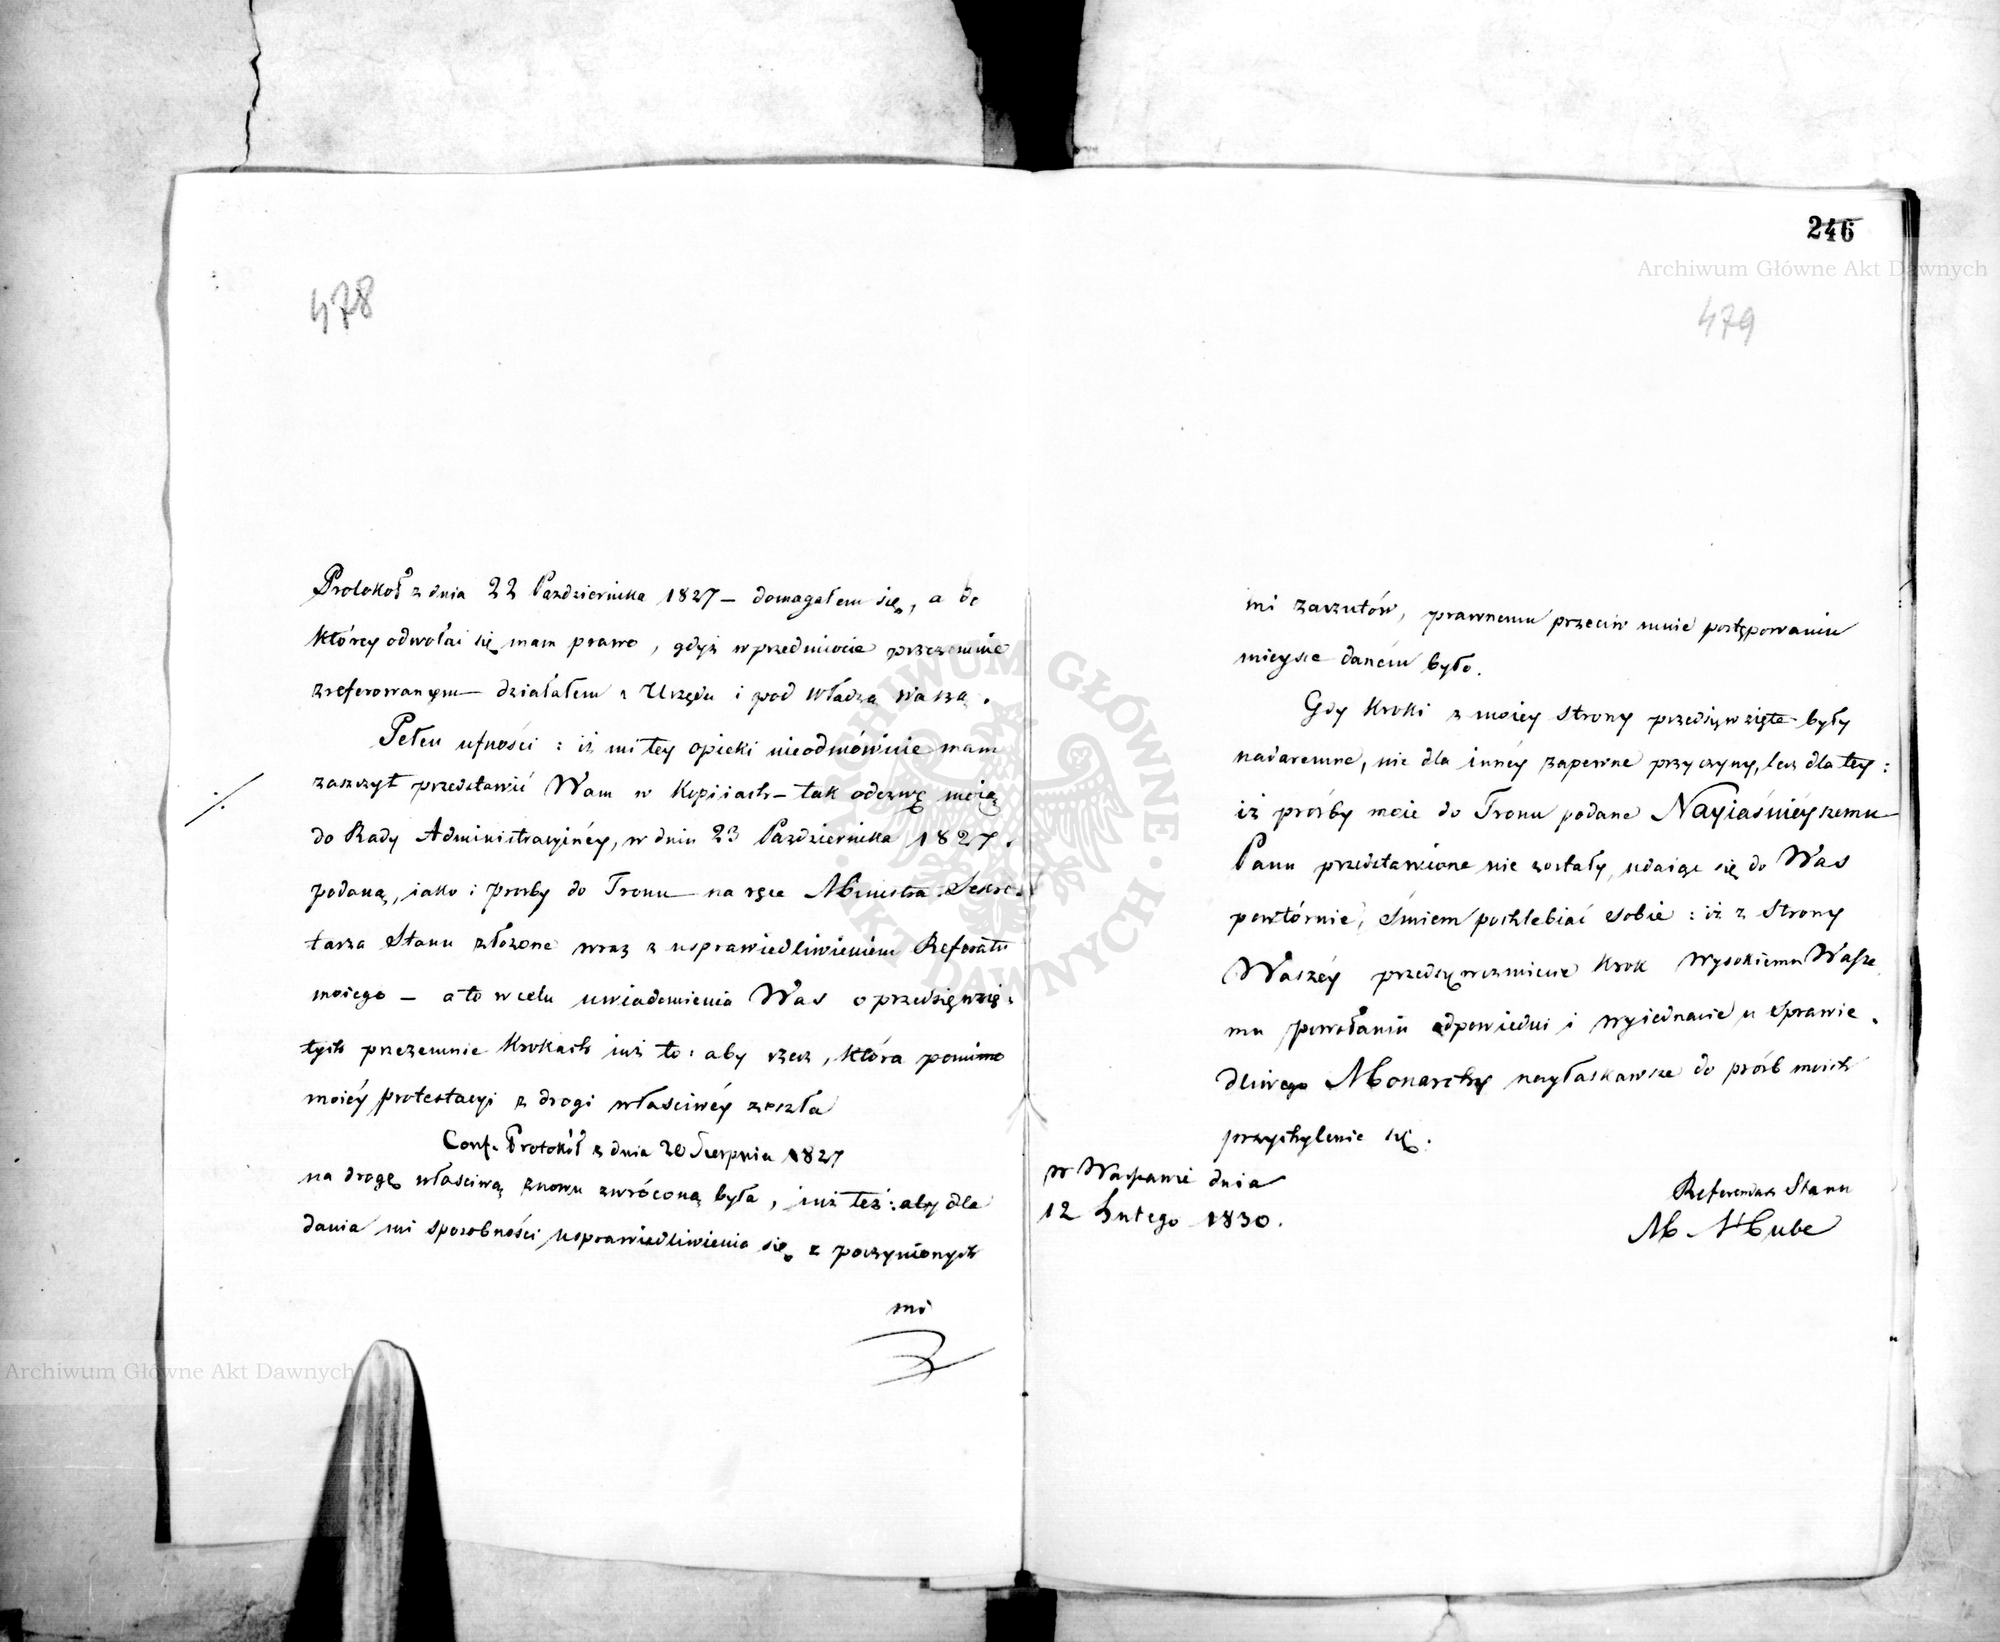 478
Protokoł z dnia 22 Pazdziernika 1827 – domagałem się, a do
którey odwołać się mam prawo, gdyż w przedmiocie przezemnie
zreferowanym działałem z Urzędu i pod władzą waszą.
Pełen ufności: iż mi tey opieki nieodmówicie mam
zaszczyt przedstawić Wam w Kopiiach – tak odezwę moią
do Rady Administracyinéy, w dniu 23 Pazdziernika 1827.
podaną, iako i prosby do Tronu na ręce Ministra Sekre-
tarza Stanu złożone wraz z usprawiedliwieniem Referatu
moiego – a to w celu uwiadomienia Was o przedsięwzię-
tych przezemnie Krokach iuż to: aby rzecz, która pomimo
moiéy protestacyi z drogi właściwéy zeszła
Conf. Protokół z dnia 20 Sierpnia 1827
na drogę właściwą znowu zwróconą była, iuż też: aby dla
dania mi sposobności usprawiedliwienia się z poczynionych
mi
246
Archiwum Główne Akt Dawnych
479
mi zarzutów, prawnemu przeciw mnie postępowaniu
mieysce daném było.
Gdy Kroki z moiey strony przedsięwzięte były
nadaremne, nie dla innéy zapewne przyczyny, lecz dla tey:
iż prośby moie do Tronu podane Nayiaśnieyszemu
Panu przedstawione nie zostały, udaiąc się do Was
powtórnie, śmiem pochlebiać sobie: iż z strony
Waszéy przedsięweźmiecie Krok Wysokiemu Wasze
mu powołaniu odpowiedni i wyiednacie u sprawie-
dliwego Monarchy nayłaskawsze do prośb moich
przychylenie się.
w Warszawie dnia
12 Lutego 1830.
Referendarz Stanu
M Hube
ARCHIWUM GŁÓWNE AKT DAWNYCH
Archiwum Główne Akt Dawnych